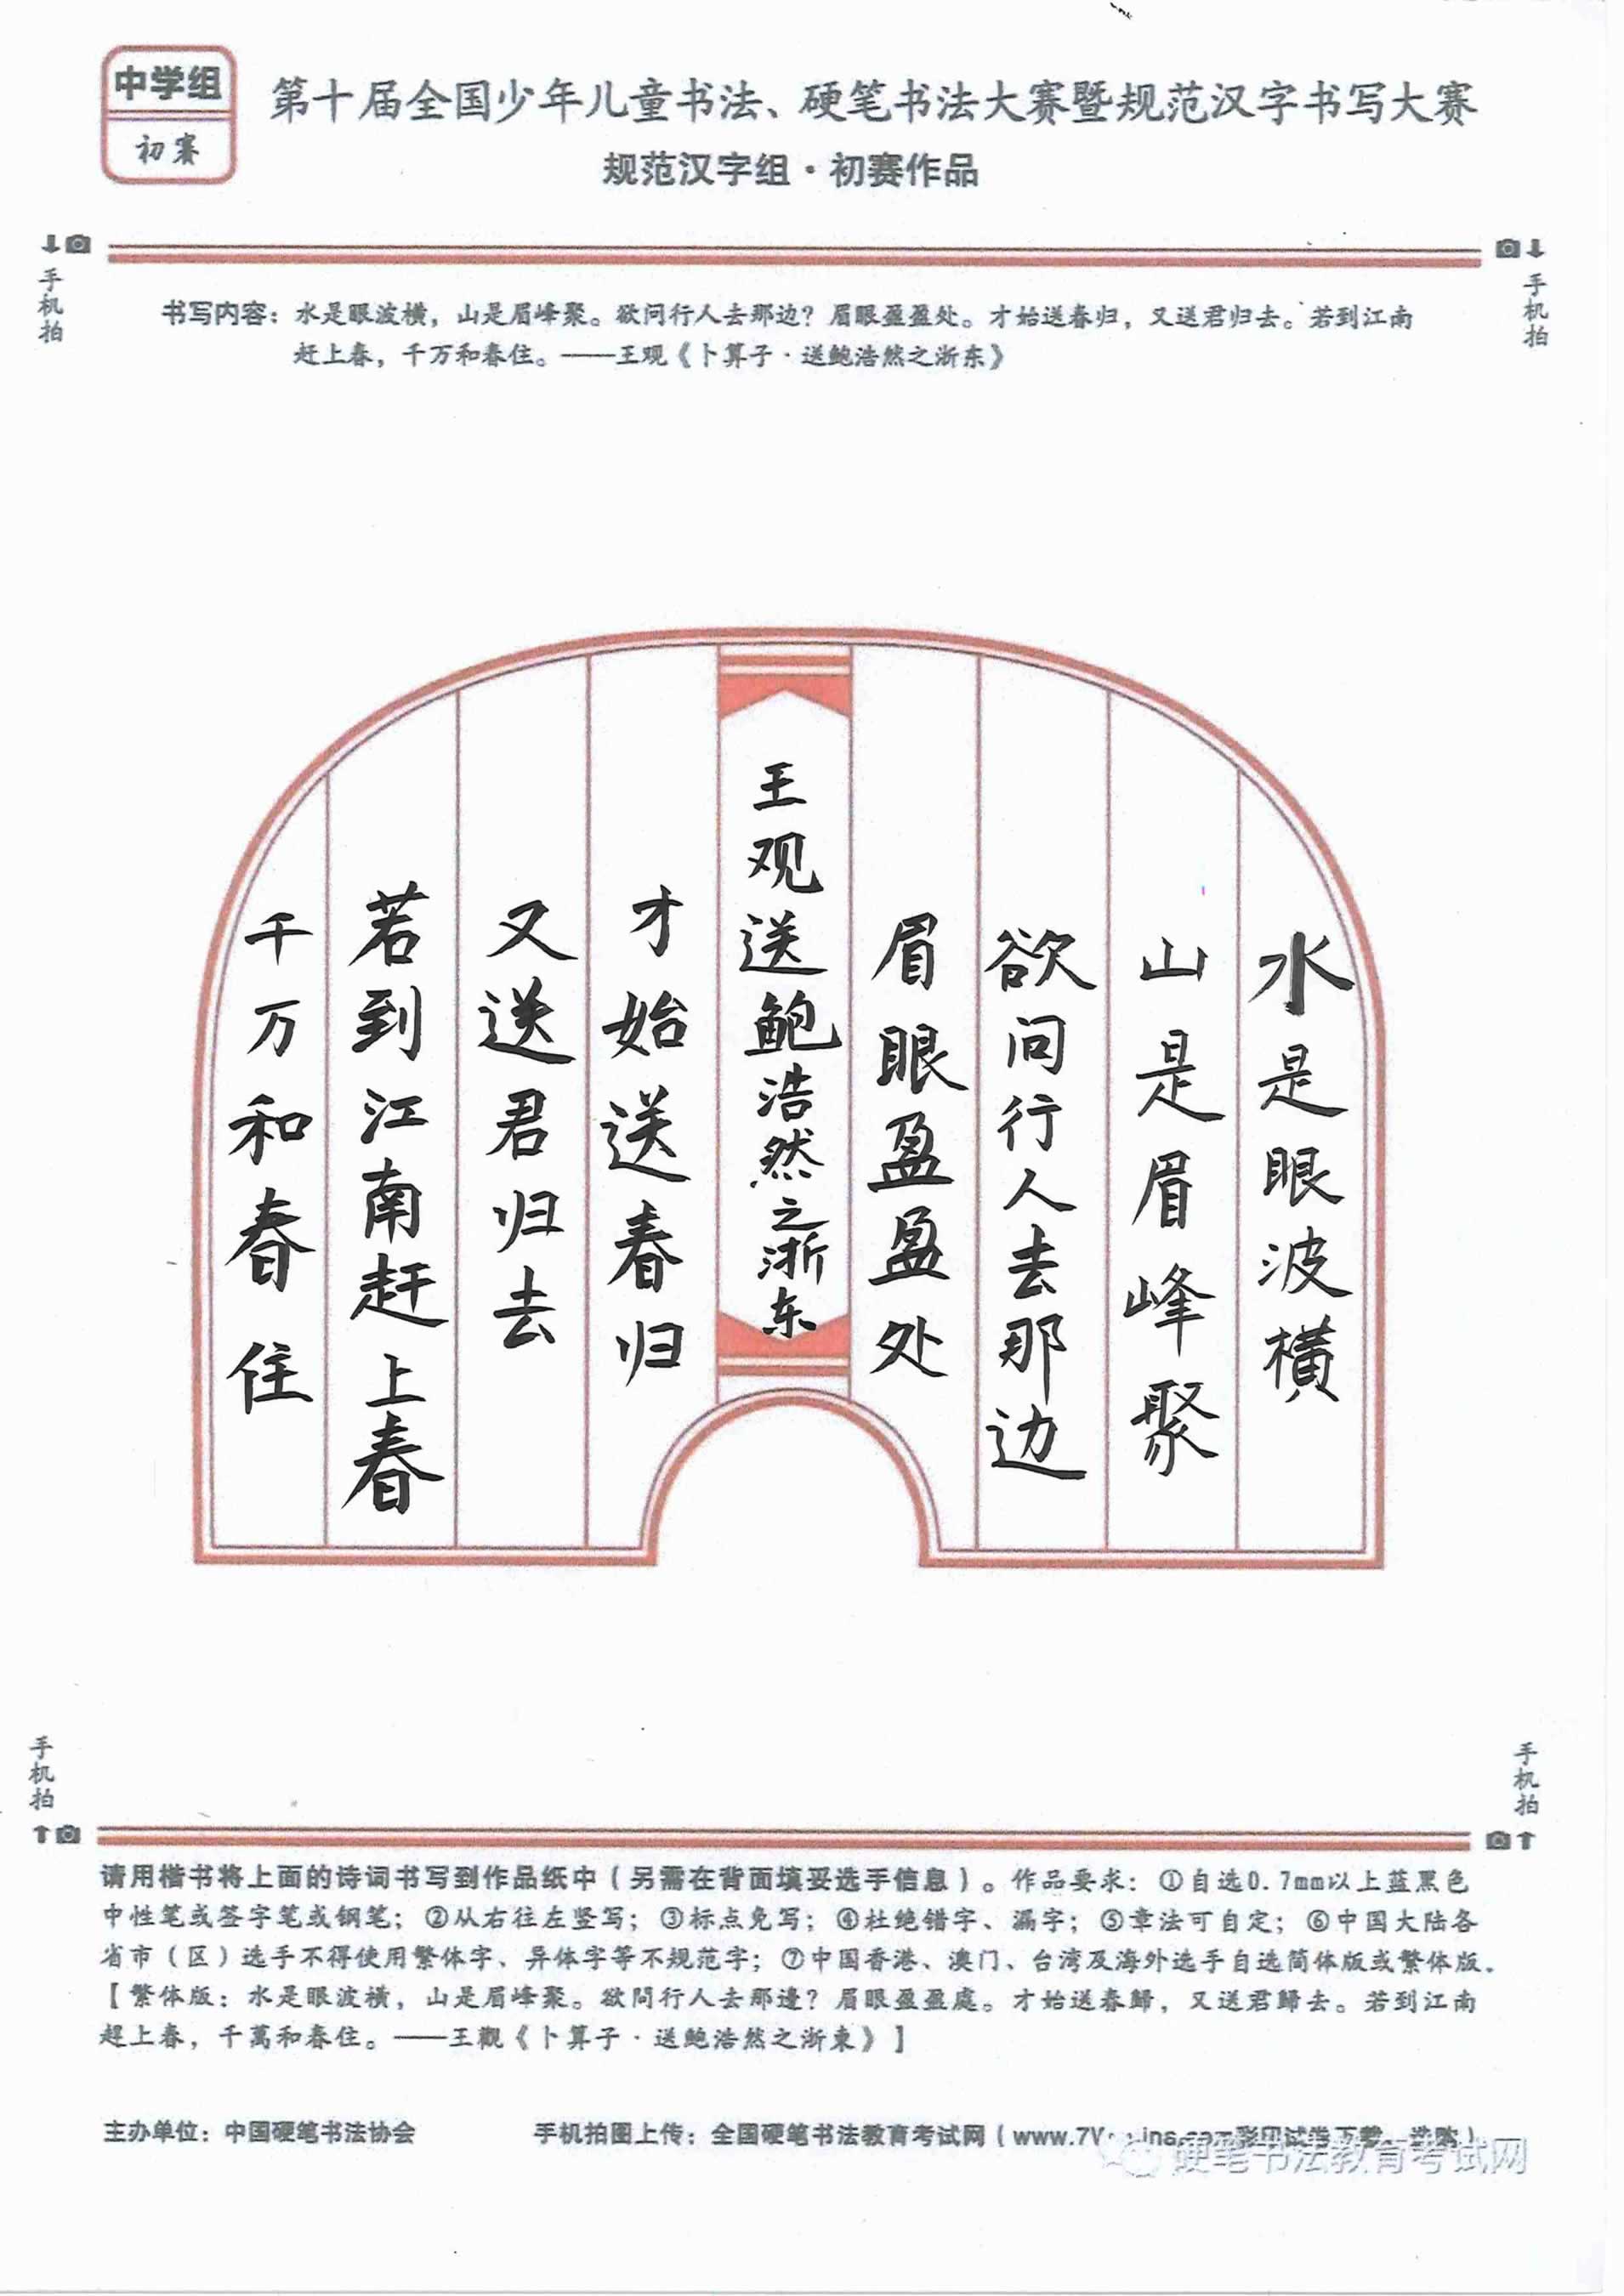 中学组
初赛
第十届全国少年儿童书法、硬笔书法大赛暨规范汉字书写大赛
规范汉字组·初赛作品
手机拍
手机拍
书写内容：水是眼波横，山是眉峰聚。欲问行人去那边？眉眼盈盈处。才始送春归，又送君归去。若到江南
赶上春，千万和春住。——王观《卜算子·送鲍浩然之浙东》
水是眼波横
山是眉峰聚
欲问行人去那边
眉眼盈盈处
王观送鲍浩然之浙东
才始送春归
又送君归去
若到江南赶上春
千万和春住
手机拍
手机拍
请用楷书将上面的诗词书写到作品纸中（另需在背面填妥选手信息）。作品要求：①自选0.7mm以上蓝黑色
中性笔或签字笔或钢笔；②从右往左竖写；③标点免写；④杜绝错字、漏字；⑤章法可自定；⑥中国大陆各
省市（区）选手不得使用繁体字、异体字等不规范字；⑦中国香港、澳门、台湾及海外选手自选简体版或繁体版。
【繁体版：水是眼波橫，山是眉峰聚。欲問行人去那邊？眉眼盈盈處。才始送春歸，又送君歸去。若到江南
趕上春，千萬和春住。——王觀《卜算子·送鮑浩然之浙東》】
主办单位：中国硬笔书法协会
手机拍图上传：全国硬笔书法教育考试网（www.7V
彩印试卷下载、选购）
硬笔书法教育考试网